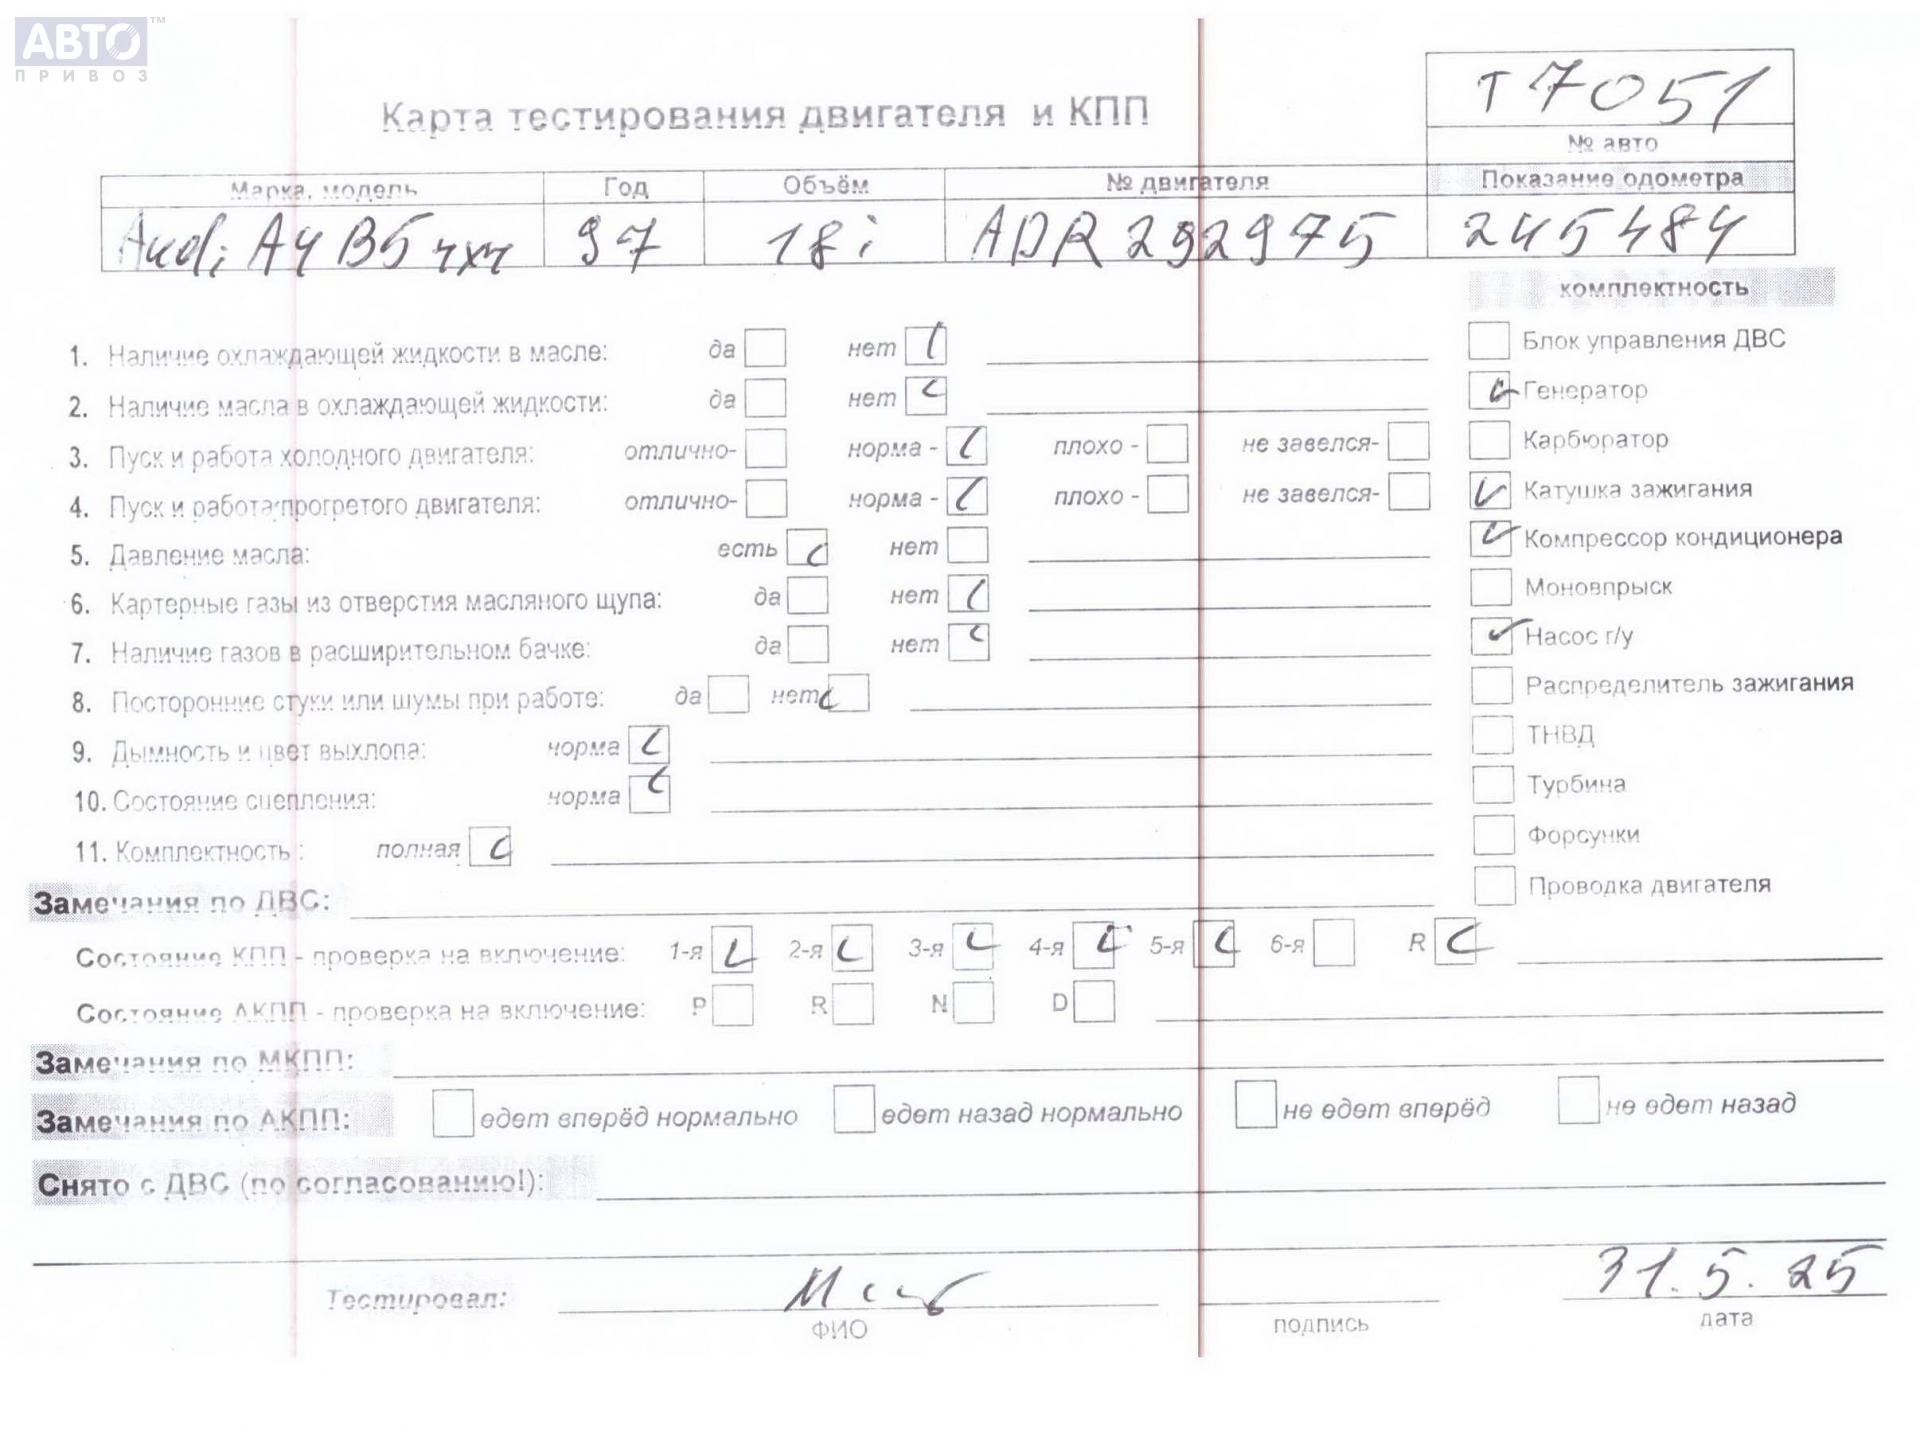 АВТО™
ПРИВОЗ
Т 7051
№ авто
Карта тестирования двигателя и КПП
Марка, модель Год Объём № двигателя Показание одометра
Audi A4 B5 4x4 97 18i ADR 292975 245484
комплектность
1. Наличие охлаждающей жидкости в масле: да нет
Блок управления ДВС
2. Наличие масла в охлаждающей жидкости: да нет
Генератор
3. Пуск и работа холодного двигателя: отлично- норма - плохо - не завелся-
Карбюратор
4. Пуск и работа прогретого двигателя: отлично- норма - плохо - не завелся-
Катушка зажигания
5. Давление масла: есть нет
Компрессор кондиционера
6. Картерные газы из отверстия масляного щупа: да нет
Моновпрыск
7. Наличие газов в расширительном бачке: да нет
Насос г/у
8. Посторонние стуки или шумы при работе: да нет
Распределитель зажигания
9. Дымность и цвет выхлопа: норма
ТНВД
10. Состояние сцепления: норма
Турбина
11. Комплектность : полная
Форсунки
Проводка двигателя
Замечания по ДВС:
Состояние КПП - проверка на включение: 1-я 2-я 3-я 4-я 5-я 6-я R
Состояние АКПП - проверка на включение: P R N D
Замечания по МКПП:
Замечания по АКПП: едет вперёд нормально едет назад нормально не едет вперёд не едет назад
Снято с ДВС (по согласованию!):
Тестировал: 31.5.25
ФИО подпись дата